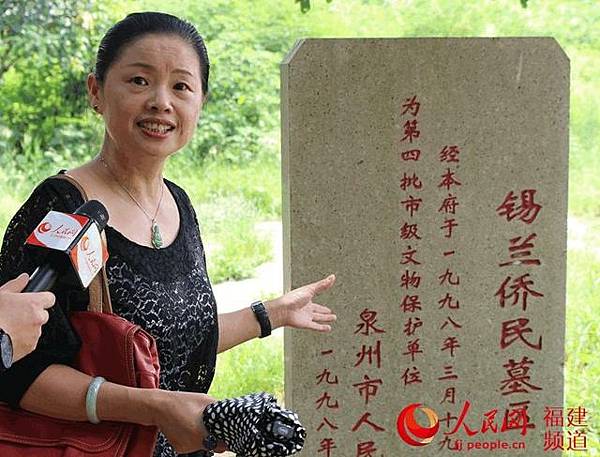 锡兰侨民墓
经本府于一九九八年三月十九
为第四批市级文物保护单位
泉州市人民
一九九八年
人民网
人民网
fj.people.cn
福建
频道